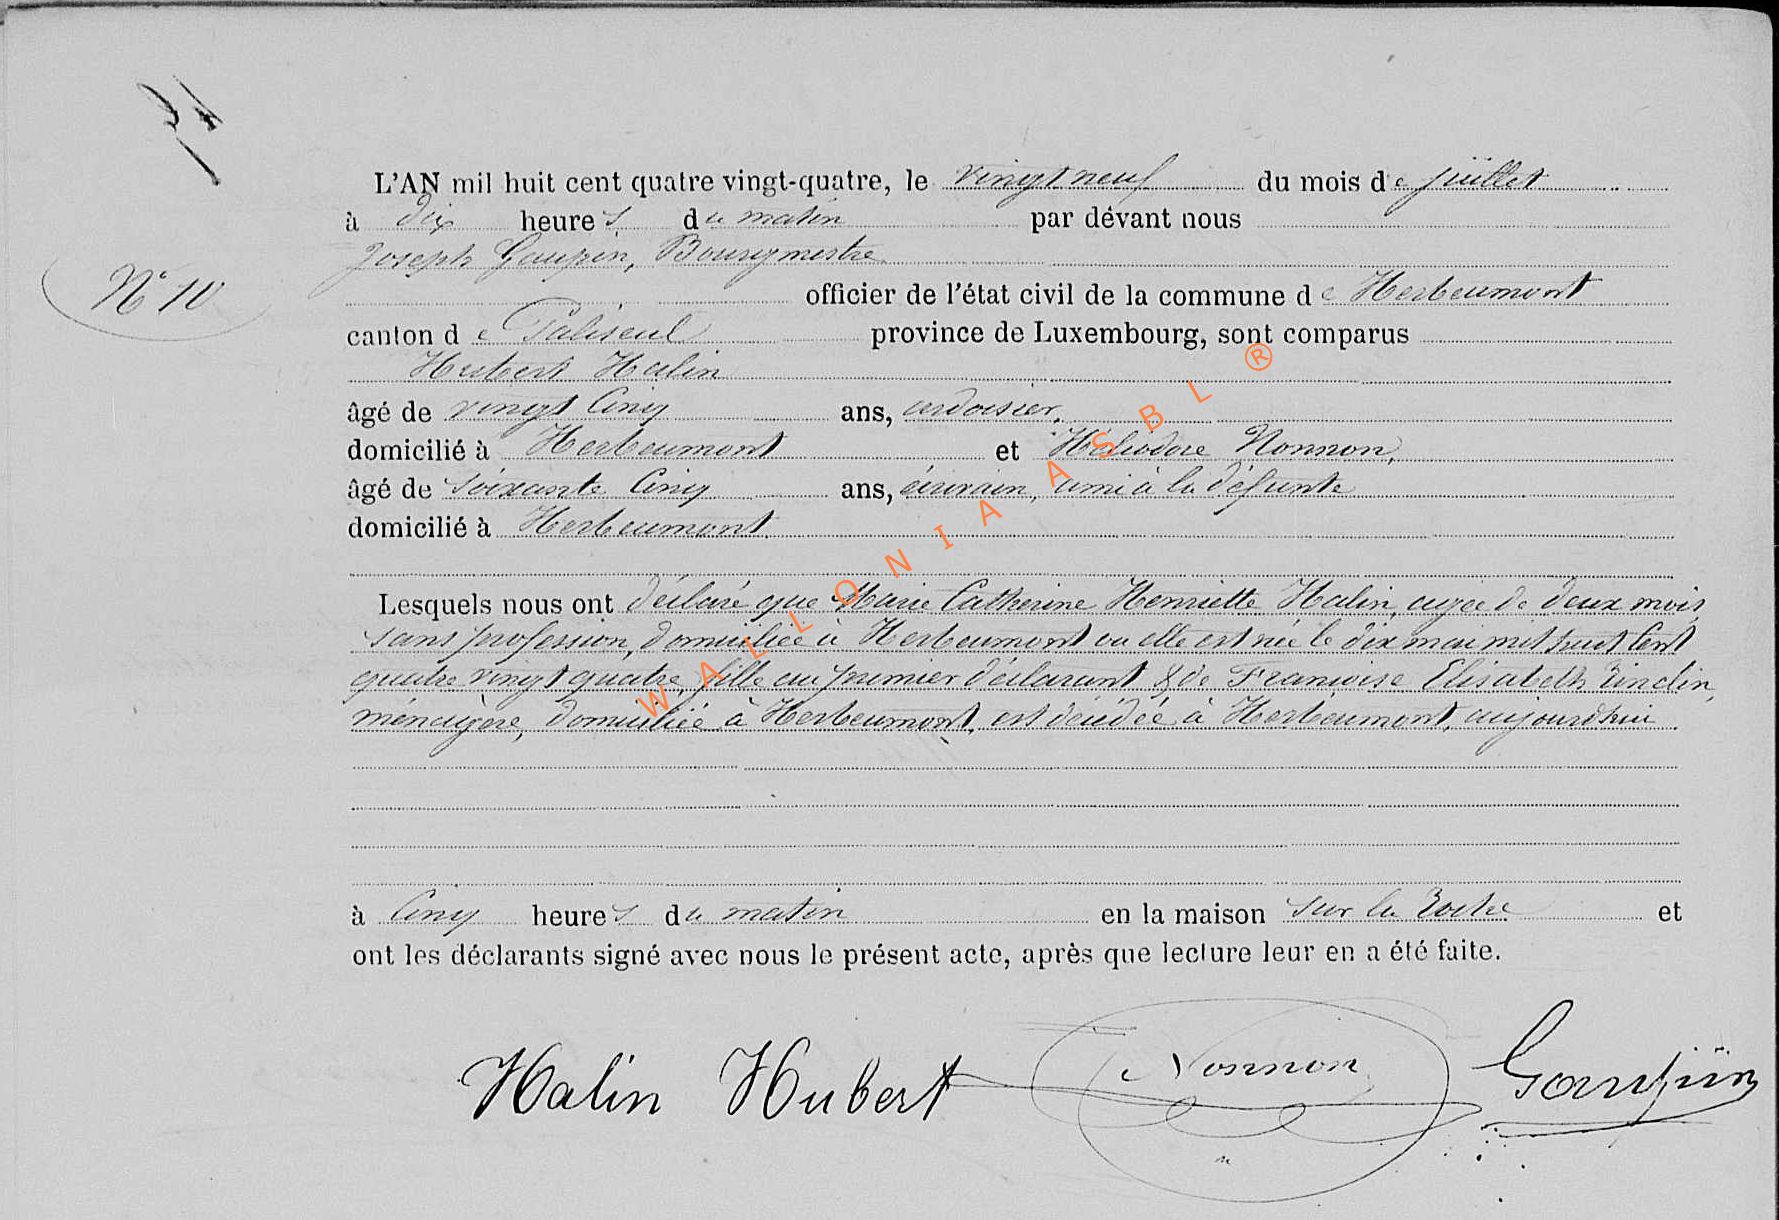 L'AN mil huit cent quatre vingt-quatre, le vingt neuf du mois de juillet
à dix heures du matin par dévant nous
Joseph Goupin, Bourgmestre
N° 10
officier de l'état civil de la commune de Herbeumont
canton de Paliseul province de Luxembourg, sont comparus
Hubert Halin
âgé de vingt cinq ans, ardoisier,
domicilié à Herbeumont et Héliodore Nonnon,
âgé de soixante cinq ans, écrivain, ami à la défunte
domicilié à Herbeumont.
Lesquels nous ont déclaré que Marie Catherine Henriette Halin, agée de deux mois,
sans profession, domiciliée à Herbeumont ou elle est née le dix mai mil huit cent
quatre vingt quatre, fille au premier déclarant & de Françoise Elisabeth
ménagère, domiciliée à Herbeumont, est décédée à Herbeumont, aujourd'hui
à cinq heures du matin en la maison sur la Roche et
ont les déclarants signé avec nous le présent acte, après que lecture leur en a été faite.
Halin Hubert Nonnon Goupin
WALLONIA ASBL ®